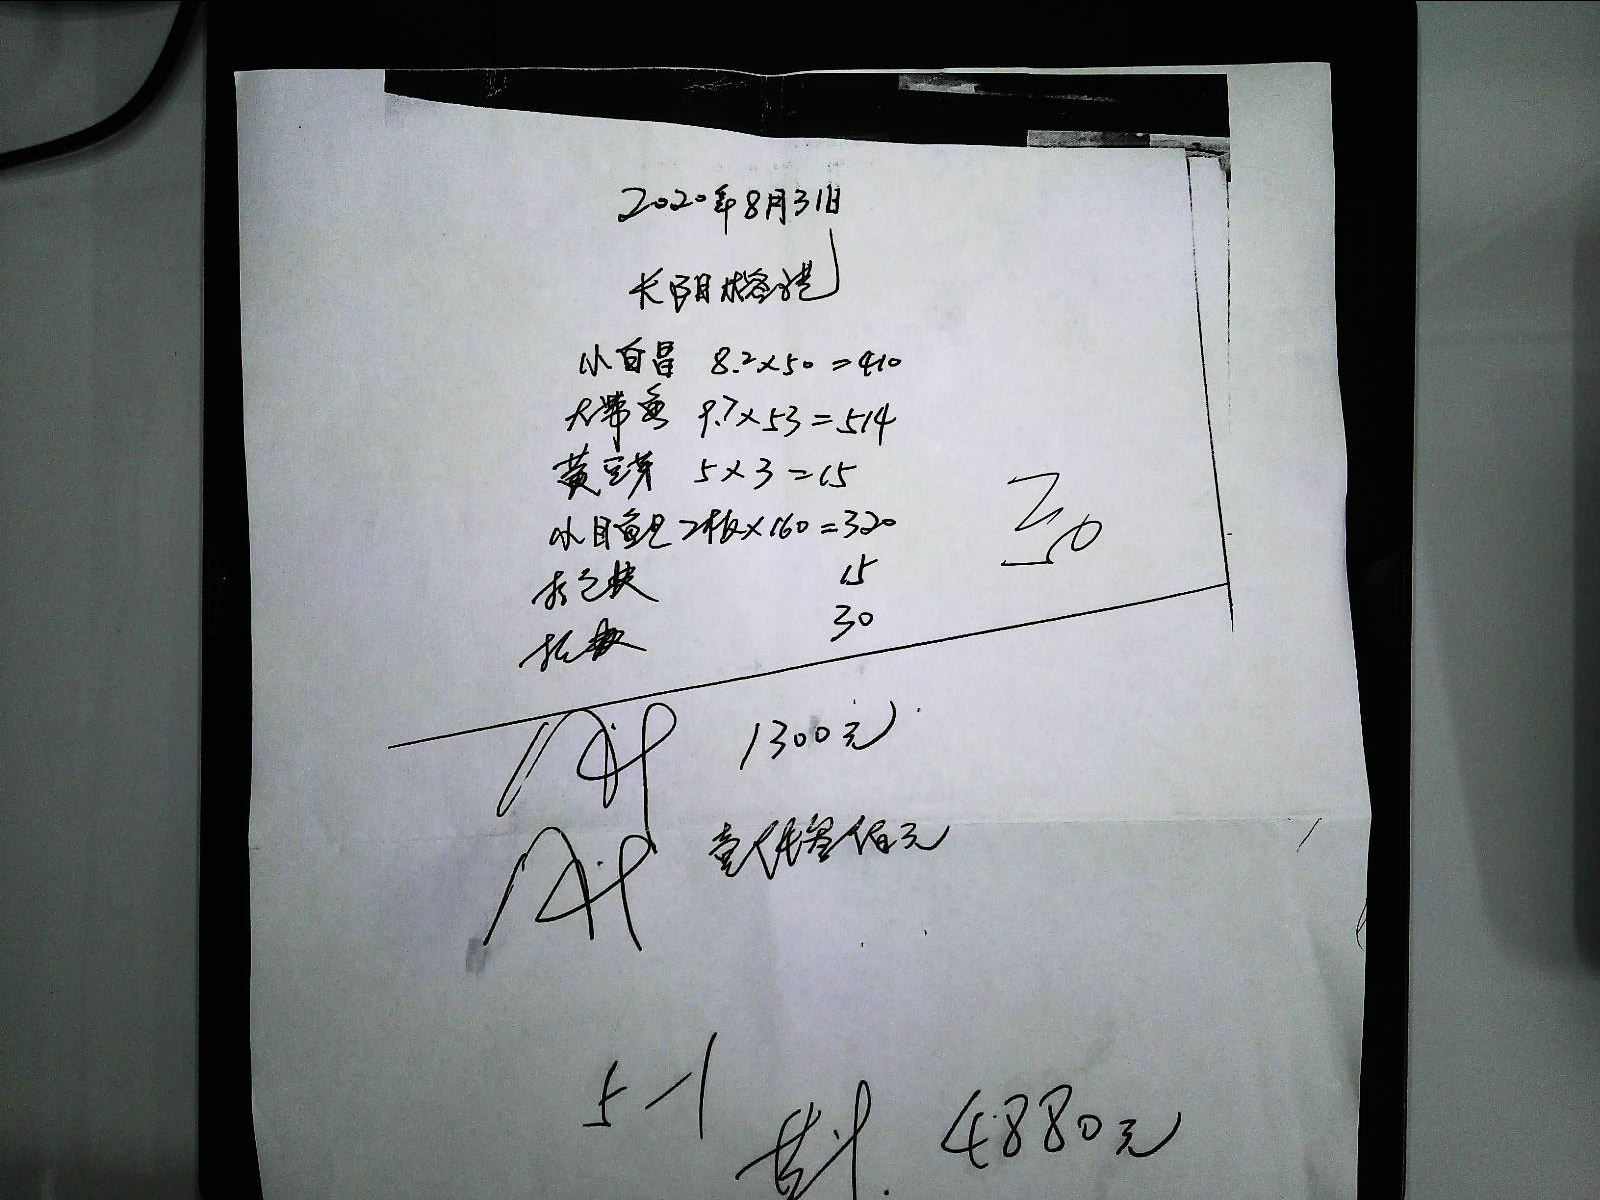 2020年8月31日
长阴榕港
小白昌 8.2×50=410
大带鱼 9.7×53=514
黄豆芽 5×3=15
小目鱼 2板×160=320
打包款 15
30
30
1300元
壹仟叁佰元
5-1
共计 4880元